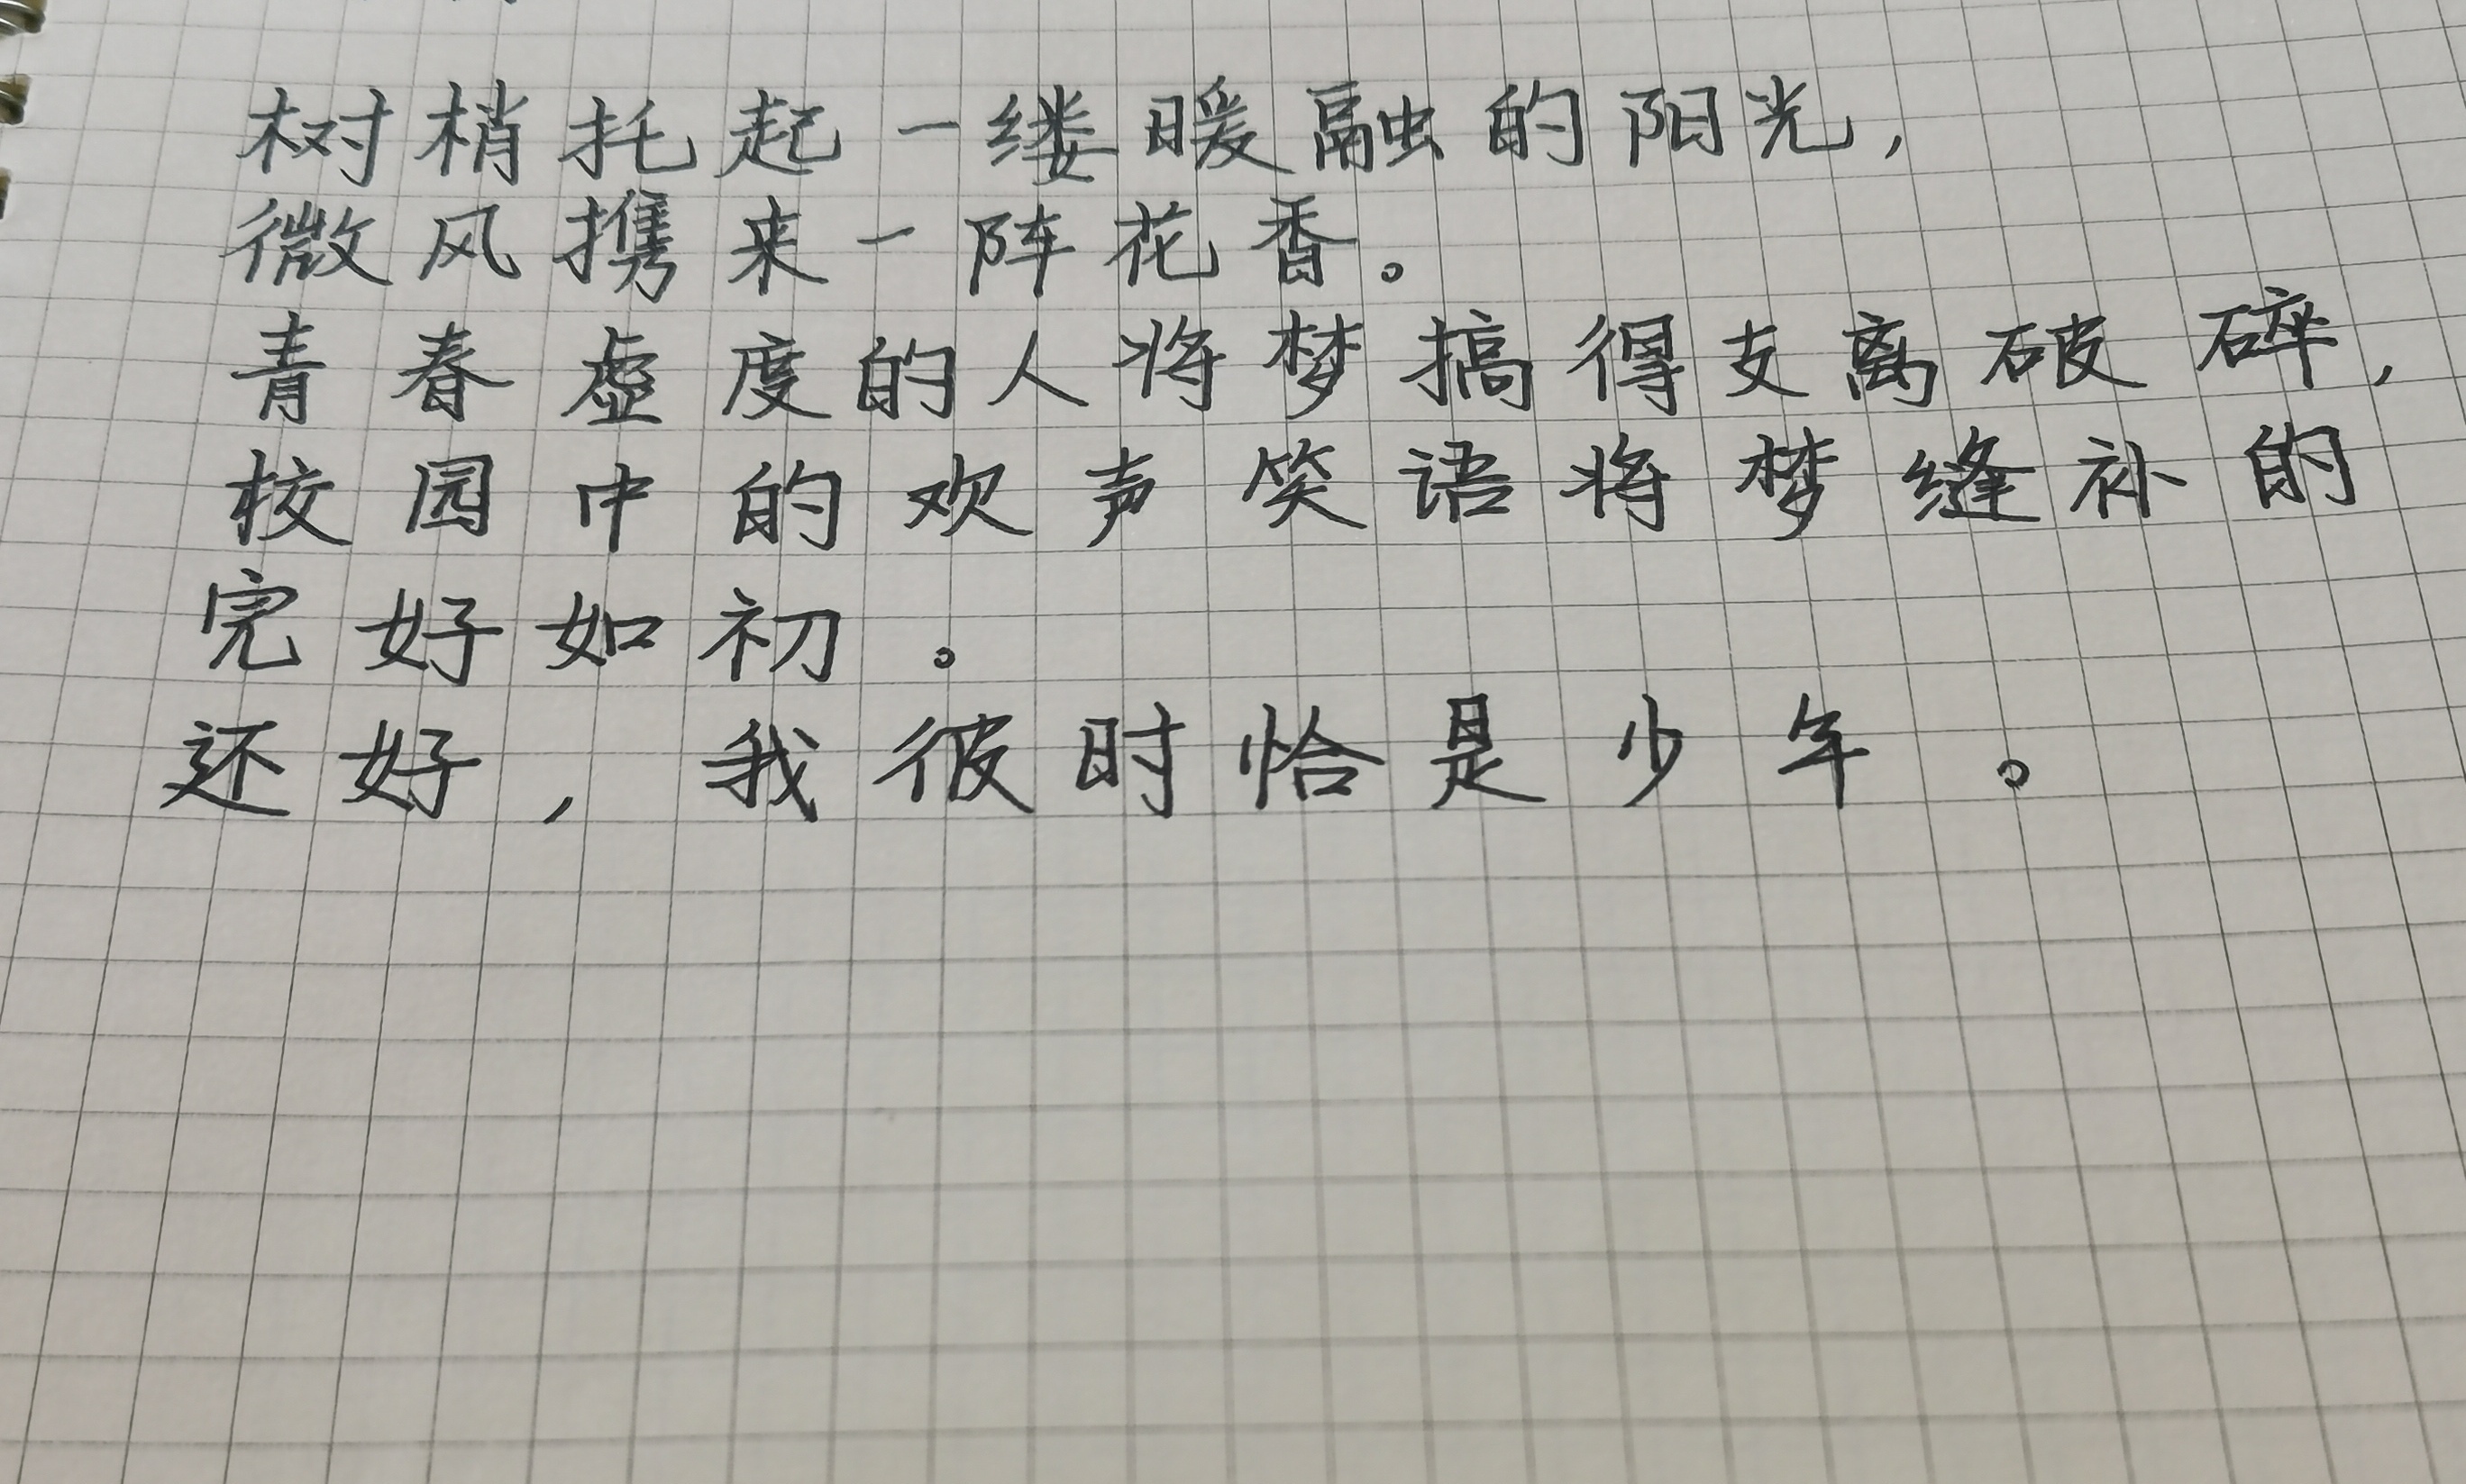 树梢托起一缕暖融的阳光，
微风携来一阵花香。
青春虚度的人将梦搞得支离破碎，
校园中的欢声笑语将梦缝补的
完好如初。
还好，我彼时恰是少年。